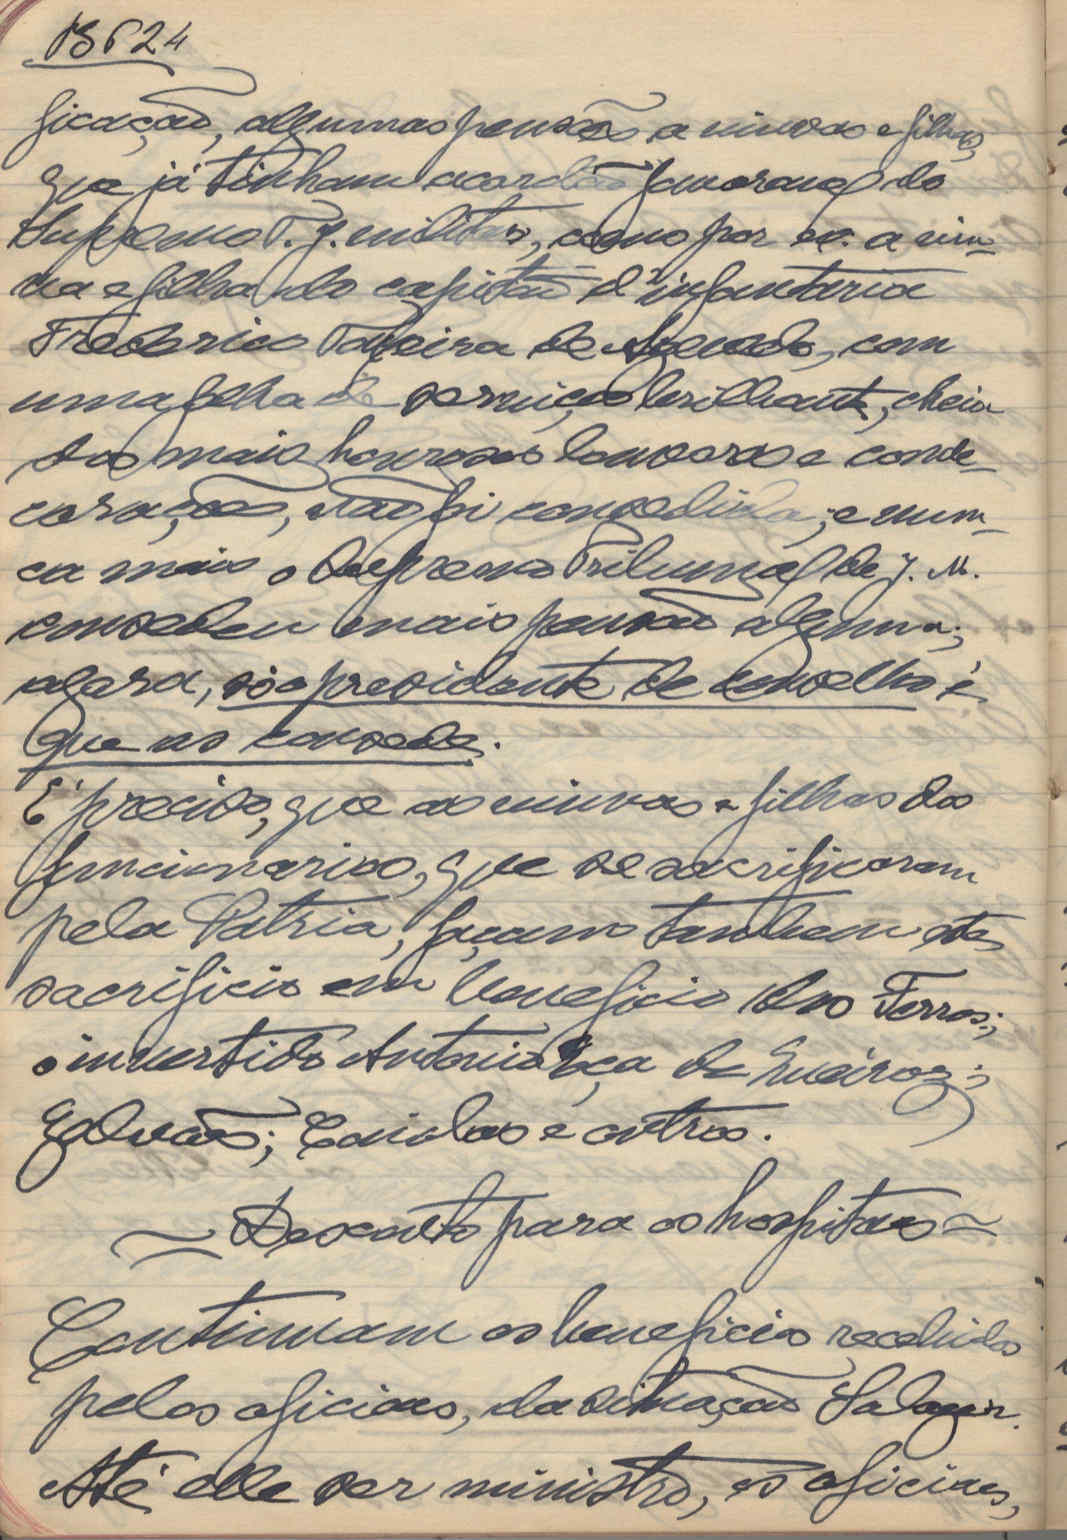 B624
ficação, algumas pensões a viuvas e filhas,
que já tinham acordão favoravel do
Supremo T. J. militar, como por ex. a viu-
va e filha do capitão d'infantaria
Frederico Taveira de Azevedo, com
uma folha de serviços brilhante, cheia
dos mais honrosos louvores e conde-
corações, não foi concedida; e nun-
ca mais o Supremo Tribunal de J. M.
concedeu mais pensão alguma;
agora, só o presidente de conselho é
que as concede.
É preciso, que as viuvas e filhas dos
funcionarios, que se sacrificaram
pela Patria, façam tambem este
sacrificio em beneficio dos Ferros;
o invertido Antonio Eça de Queiroz;
Galvão; Canelas e outros.
Desconto para os hospitaes
Continuam os beneficios recebidos
pelos oficiaes, da situação Salazar.
Até elle ser ministro, os oficiaes,